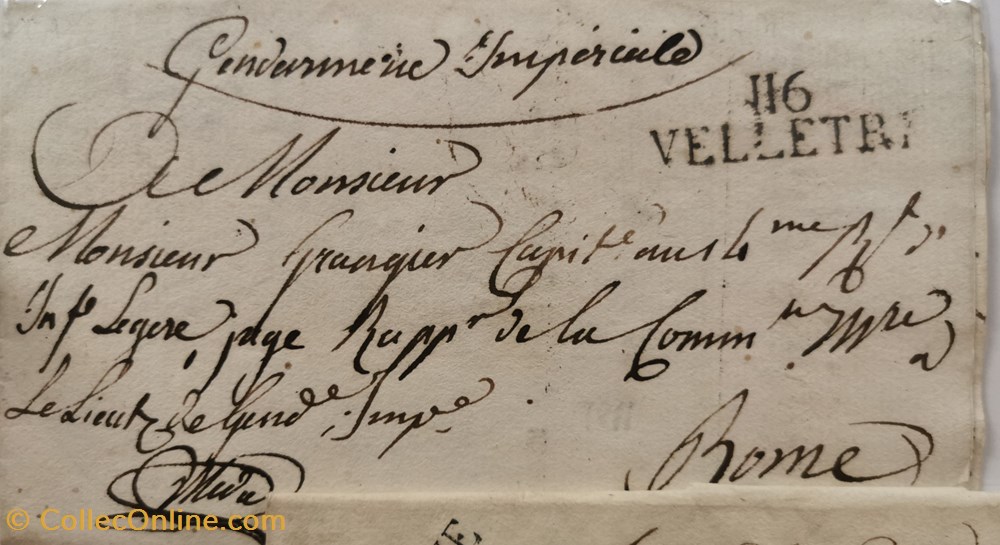 Gendarmerie Impériale
116
VELLETRI
A Monsieur
Monsieur Grangier Capit.e au 14me Rt d'
Inf.e Legere, juge Rapp.r de la Comm.on Mre
a
Le Lieut de Gend.e Imp.e
Rome
© CollecOnline.com